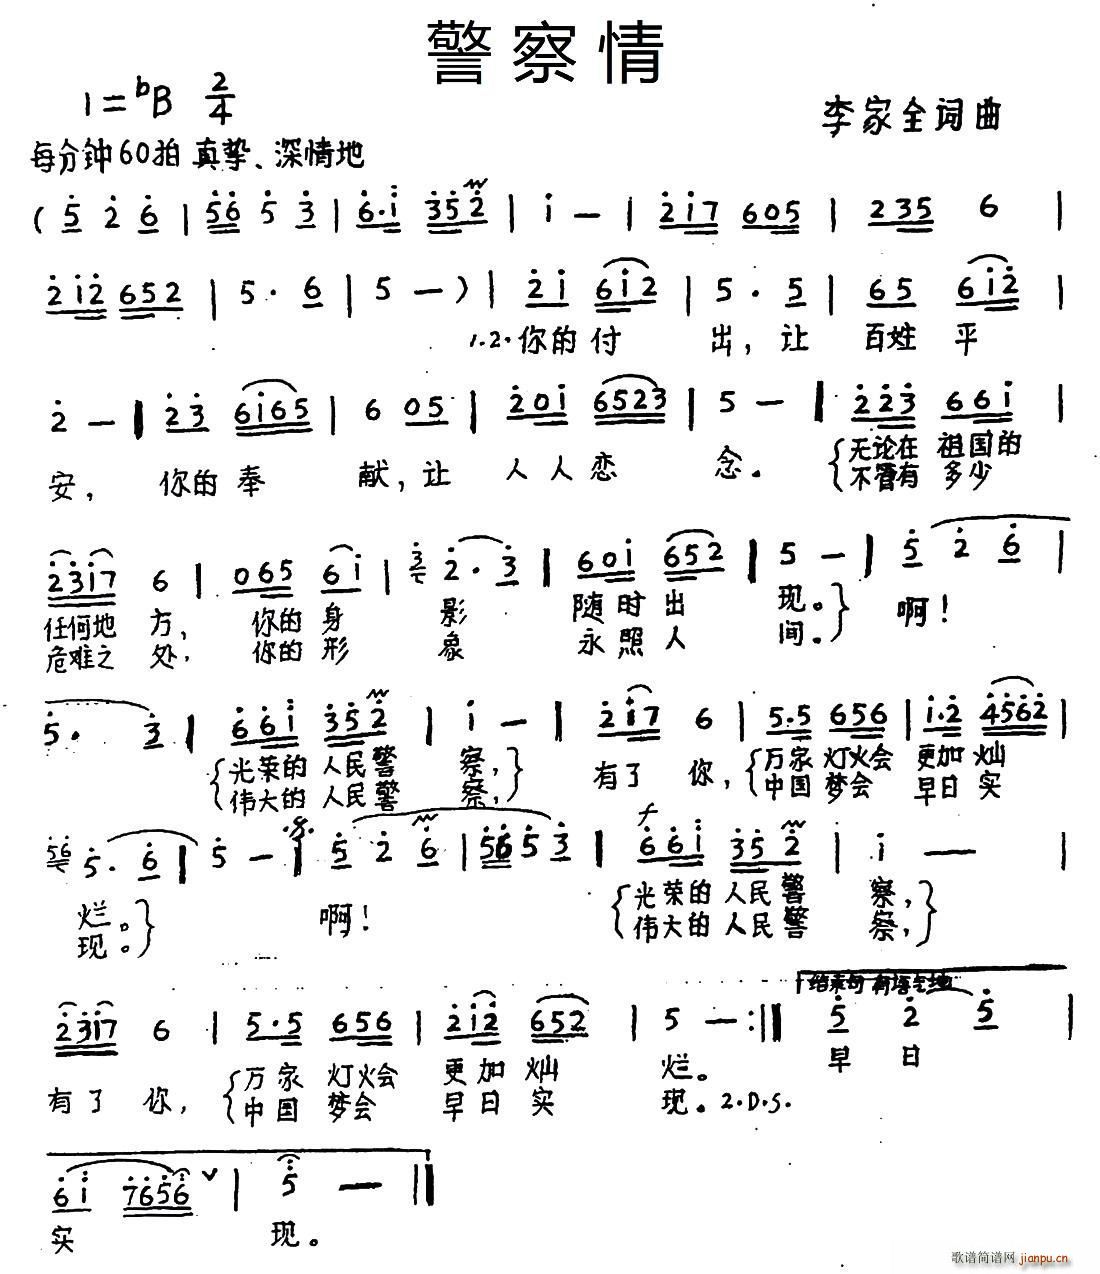 警察情
1=ᵇB 2/4
李家全词曲
每分钟60拍 真挚、深情地
( 5 2 6 | 5 6 5 3 | 6·i 3 5 2 | i — | 2 i 7 6 0 5 | 2 3 5 6 |
2 i 2 6 5 2 | 5· 6 | 5 — ) | 2 i 6 i 2 | 5· 5 | 6 5 6 i 2 |
1.2.你的付 出，让 百姓 平
2 — | 2 3 6 i 6 5 | 6 0 5 | 2 0 i 6 5 2 3 | 5 — | 2 2 3 6 6 i |
安， 你的奉 献，让 人人恋 念。 无论在 祖国的
不管有 多少
2 3 i 7 6 | 0 6 5 6 i | 3 2· 3 | 6 0 i 6 5 2 | 5 — | 5 2 6
任何地 方， 你的身 影 随时出 现。 啊！
危难之 处， 你的形 象 永照人 间。
5· 3 | 6 6 i 3 5 2 | i — | 2 i 7 6 | 5·5 6 5 6 | i·2 4 5 6 2 |
光荣的 人民警 察， 有了 你， 万家 灯火会 更加灿
伟大的 人民警 察， 中国 梦会 早日实
5 6 5· 6 | 5 — | 5 2 6 | 5 6 5 3 | f 6 6 i 3 5 2 | i — |
烂。 啊！ 光荣的 人民警 察，
现。 伟大的 人民警 察，
结束句
2 3 i 7 6 | 5·5 6 5 6 | 2 i 2 6 5 2 | 5 — :| 5 2 5 |
有了 你， 万家 灯火会 更加灿 烂。 早 日
中国 梦会 早日实 现。2.D.S.
6 i 7 6 5 6 | 5 — ‖
实 现。
歌谱简谱网 jianpu.cn